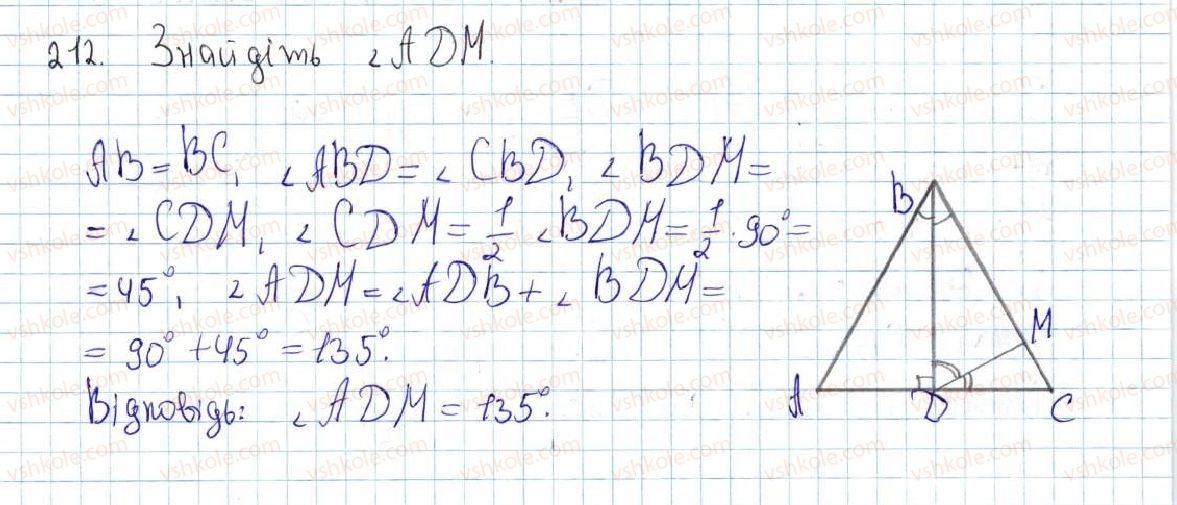 212. Знайдіть ∠ADM.
AB = BC, ∠ABD = ∠CBD, ∠BDM =
= ∠CDM, ∠CDM = 1/2 ∠BDM = 1/2 · 90° =
= 45°, ∠ADM = ∠ADB + ∠BDM =
= 90° + 45° = 135°.
Відповідь: ∠ADM = 135°.
B
M
A
D
C
vshkole.com